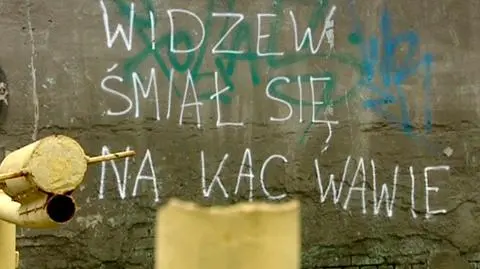 WIDZEW
ŚMIAŁ SIĘ
NA KAC WAWIE